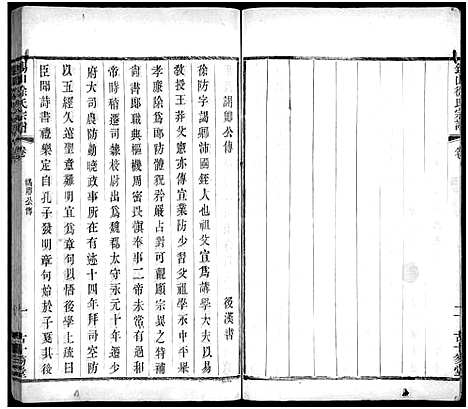 謁卿公傳
後漢書
徐防字謁卿沛國銍人也祖父宣為講學大夫以易
敎授王莽父憲亦傳宣業防少習父祖學永平中舉
孝廉除為郎防體貌矜嚴占對可觀顯宗異之特補
尚書郎職典樞機周密畏愼奉事二帝未嘗有過和
帝時稍遷司隸校尉出為魏郡太守永元十年遷少
府大司農防勤曉政事所在有迹十四年拜司空防
以五經久遠聖意難明宜為章句以悟後學上疏曰
臣聞詩書禮樂定自孔子發明章句始於子夏其後
謁卿公傳
一